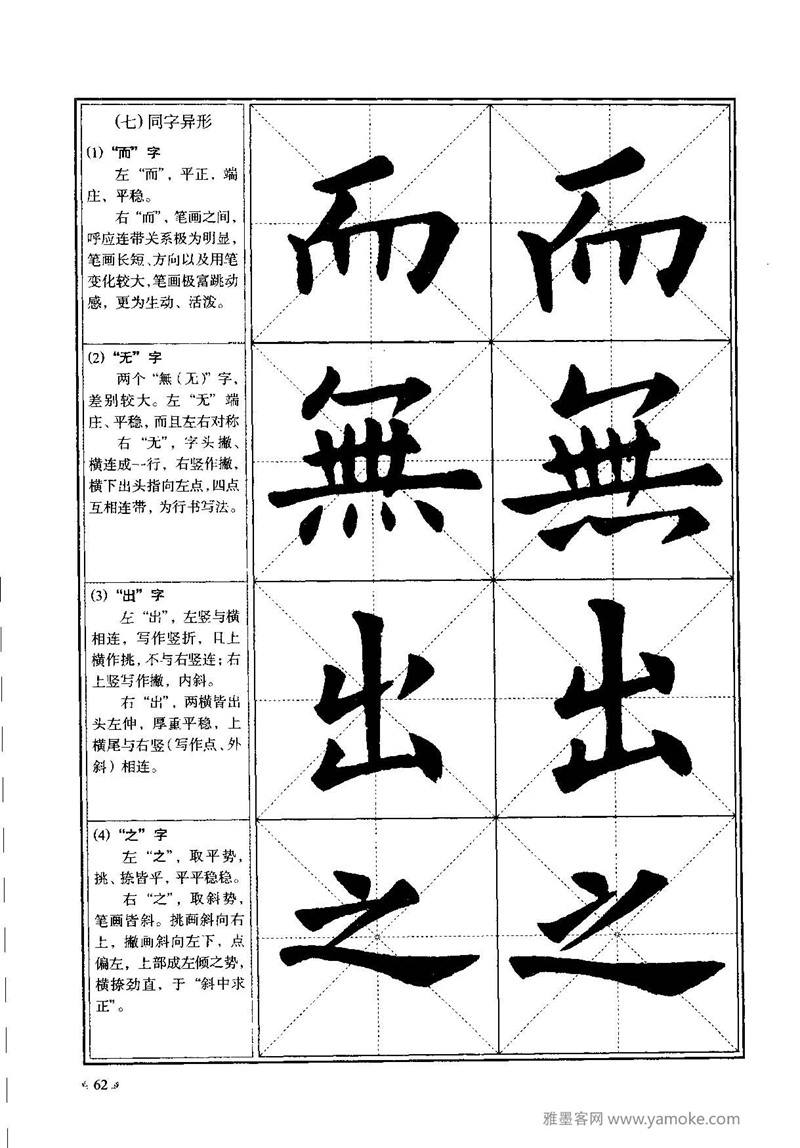 (七)同字异形
(1)“而”字
左“而”，平正，端
庄、平稳。
右“而”，笔画之间，
呼应连带关系极为明显，
笔画长短、方向以及用笔
变化较大，笔画极富跳动
感，更为生动、活泼。
而 而
(2)“无”字
两个“無(无)”字，
差别较大。左“无”端
庄、平稳，而且左右对称
右“无”，字头撇、
横连成一行，右竖作撇，
横下出头指向左点，四点
互相连带，为行书写法。
無 無
(3)“出”字
左“出”，左竖与横
相连，写作竖折，且上
横作挑，不与右竖连；右
上竖写作撇，内斜。
右“出”，两横皆出
头左伸，厚重平稳，上
横尾与右竖(写作点、外
斜)相连。
出 出
(4)“之”字
左“之”，取平势，
挑、捺皆平，平平稳稳。
右“之”，取斜势，
笔画皆斜。挑画斜向右
上，撇画斜向左下，点
偏左，上部成左倾之势，
横捺劲直，于“斜中求
正”。
之 之
62
雅墨客网 www.yamoke.com